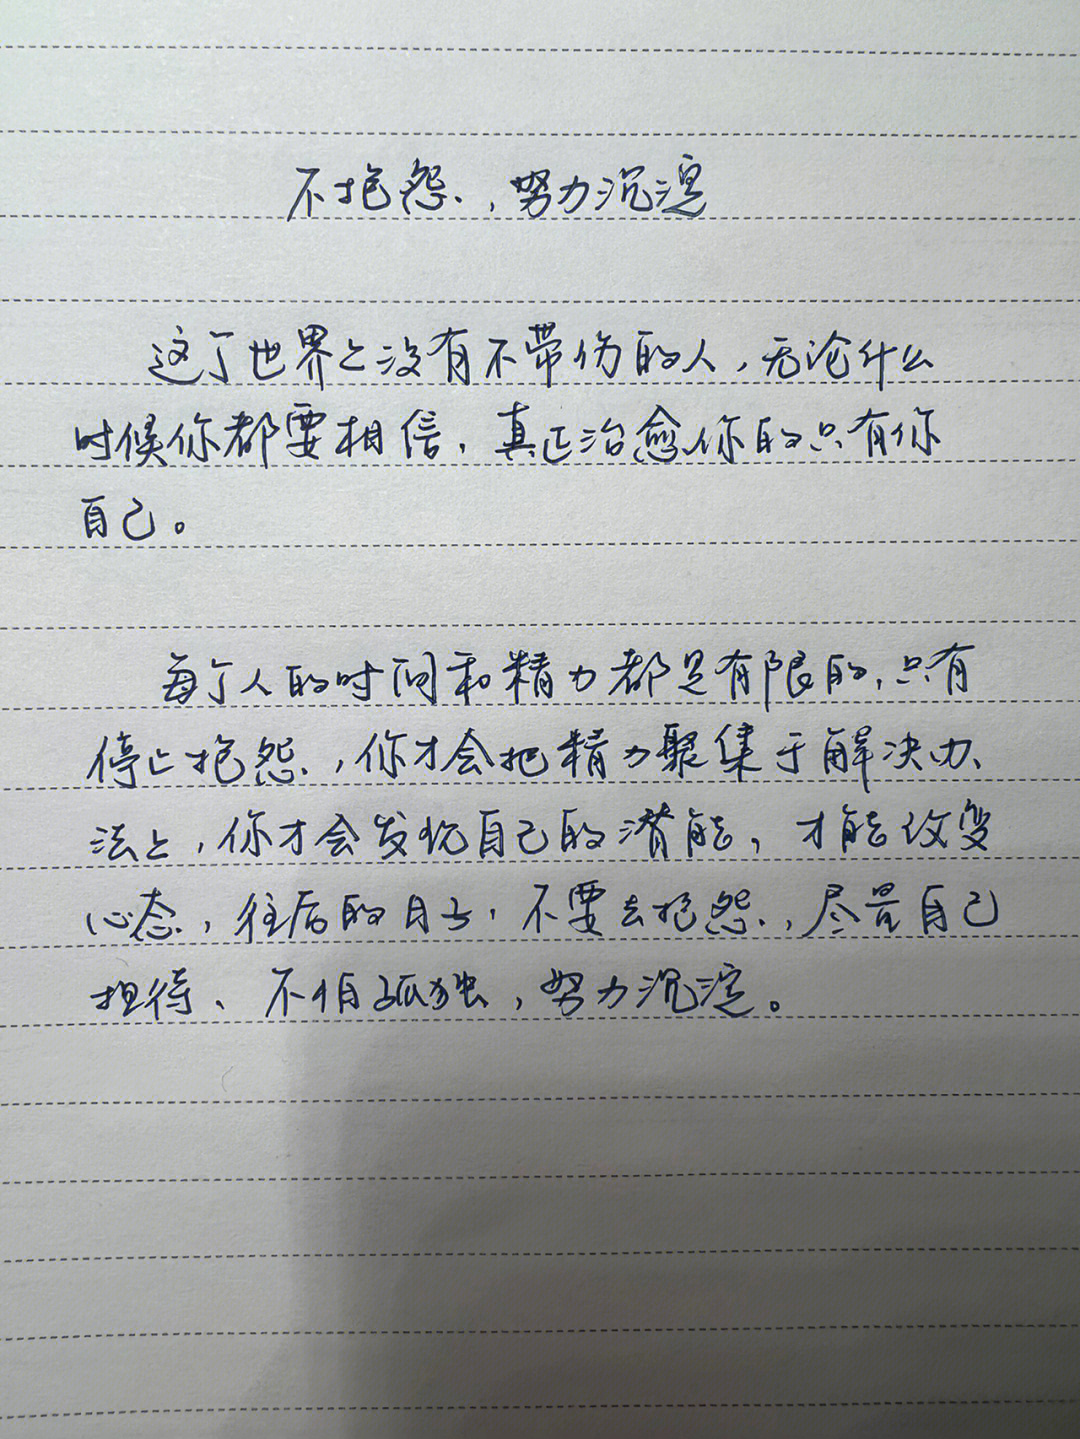 不抱怨，努力沉淀
这个世界上没有不带伤的人，无论什么
时候你都要相信，真正治愈你的只有你
自己。
每个人的时间和精力都是有限的，只有
停止抱怨，你才会把精力聚集于解决办
法上，你才会发现自己的潜能，才能改变
心态，往后的日子，不要去抱怨，尽量自己
担待、不怕孤独，努力沉淀。